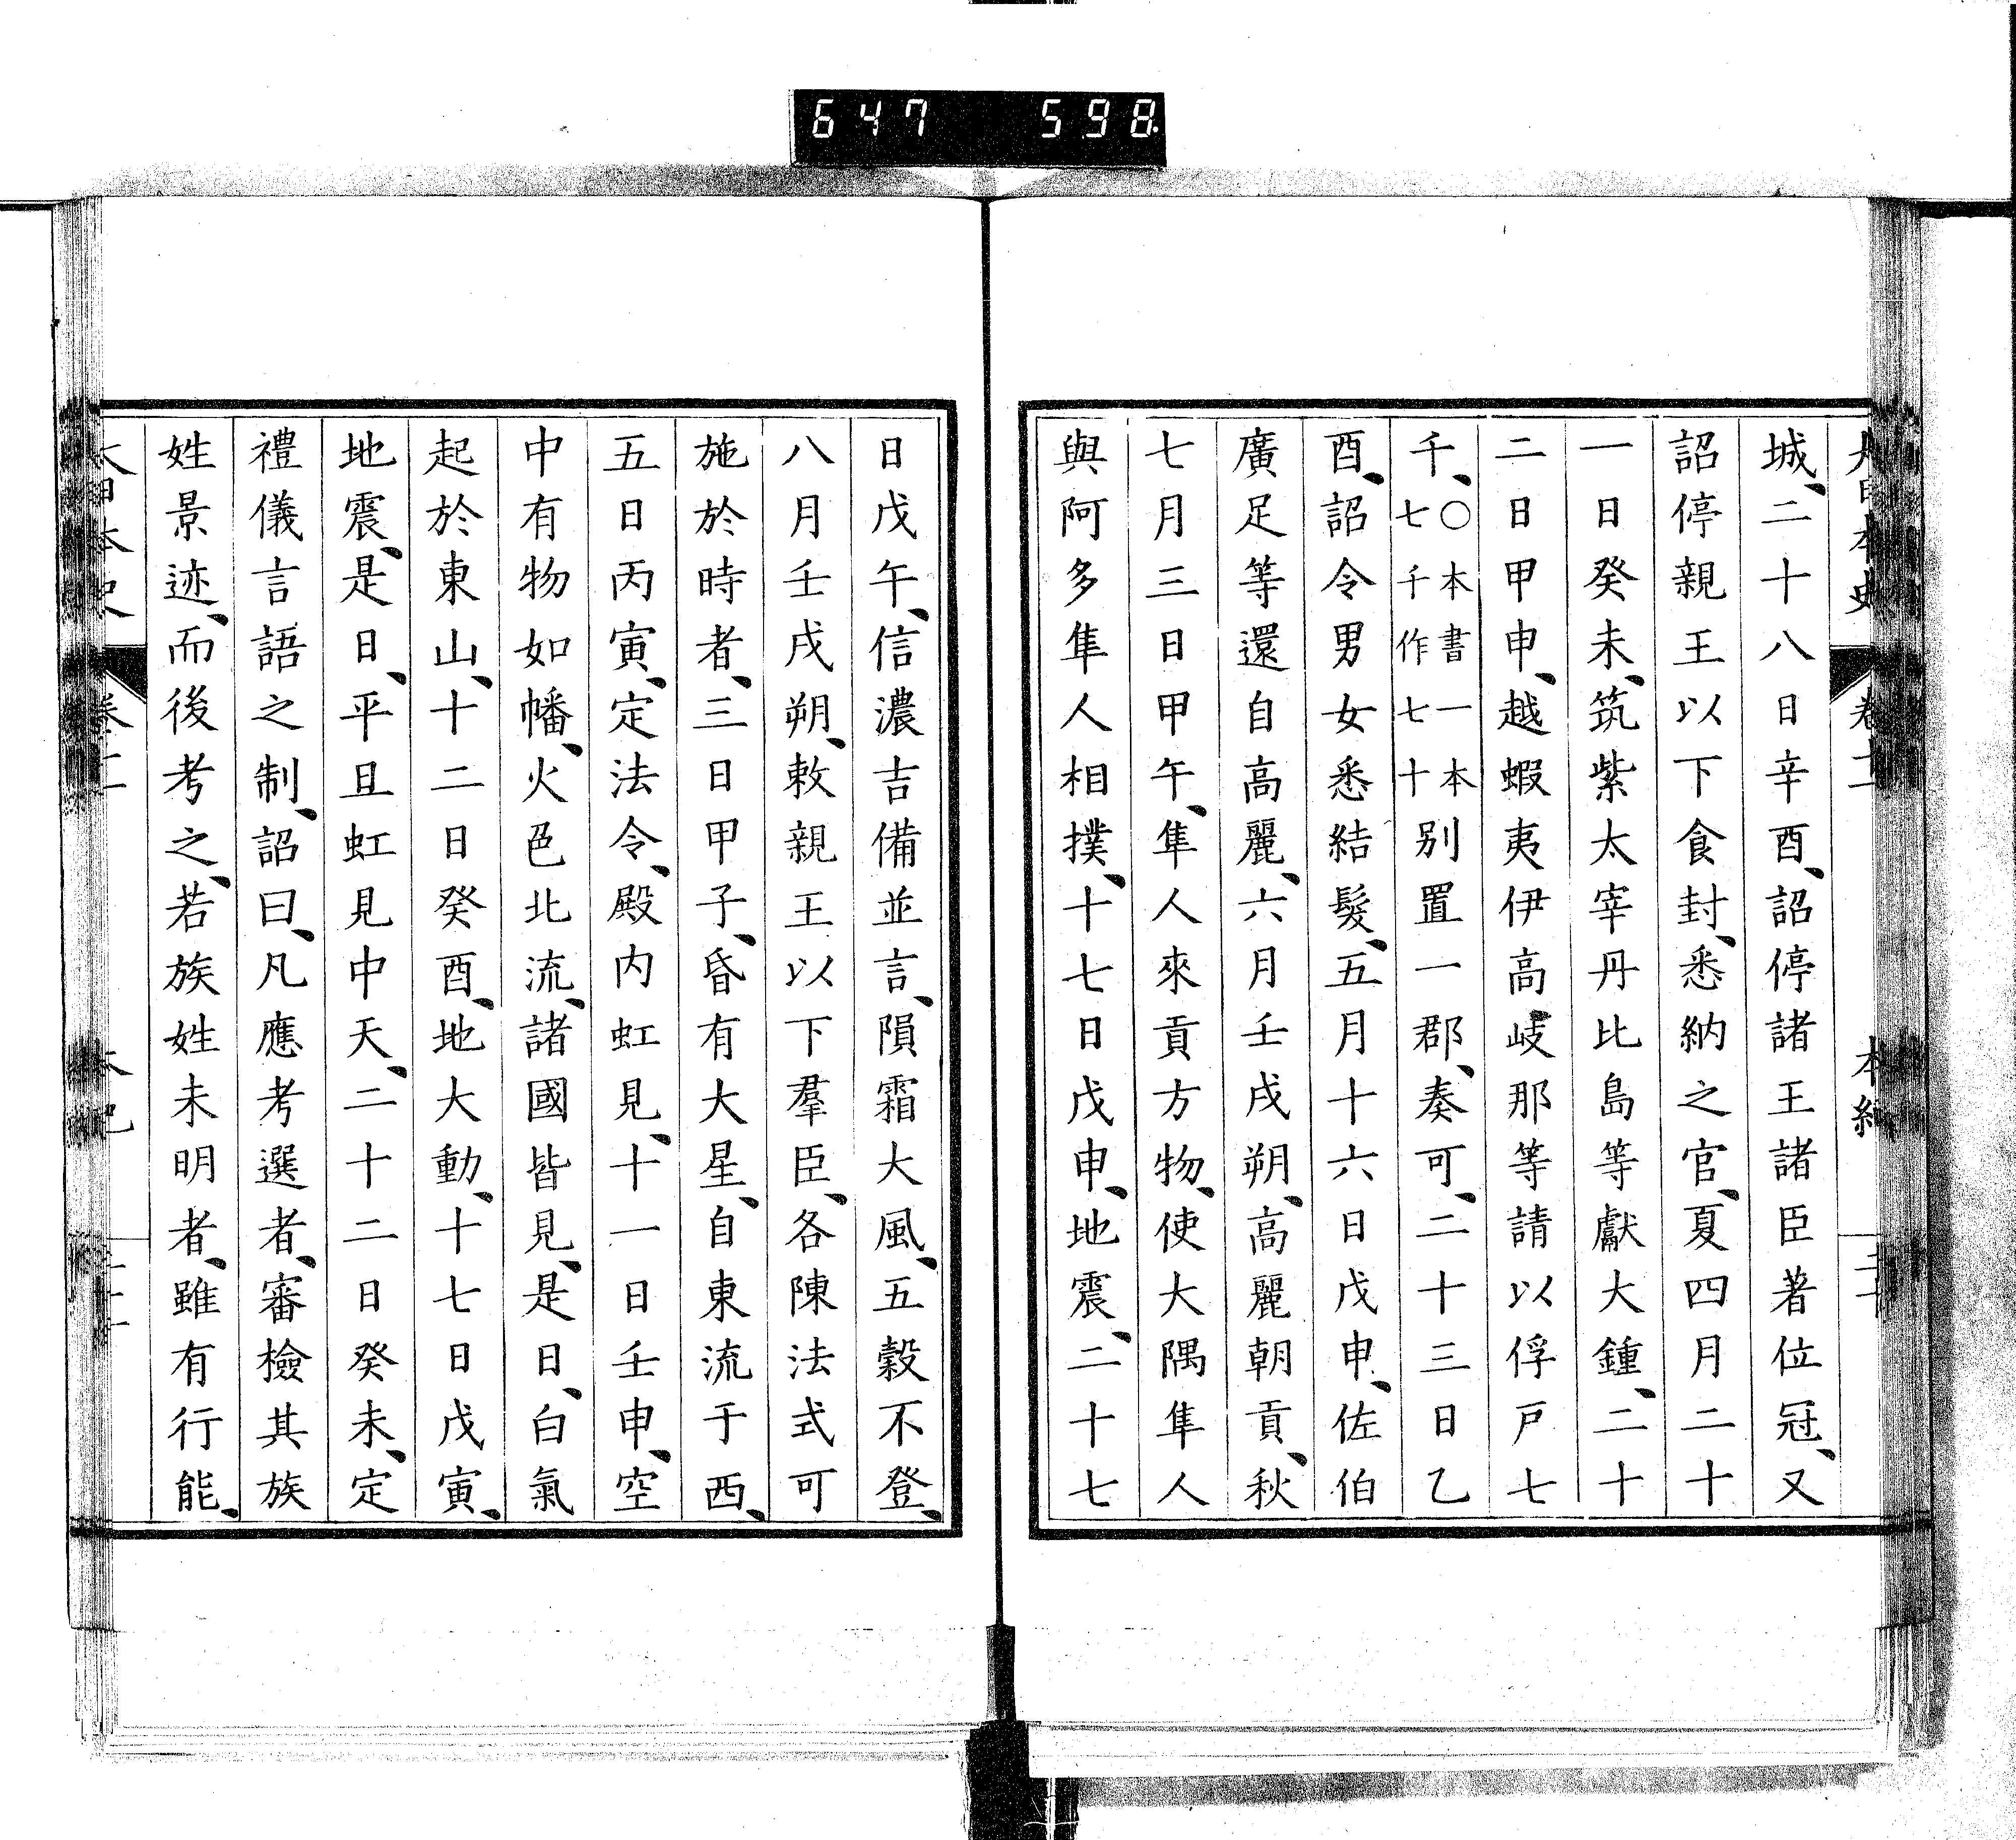 647 598
城、二十八日辛酉、詔停諸王諸臣著位冠、又
詔停親王以下食封、悉納之官、夏四月二十
一日癸未、筑紫太宰丹比島等獻大鍾、二十
二日甲申、越蝦夷伊高岐那等請以俘戸七
千、〇本書一本七千作七十別置一郡、奏可、二十三日乙
酉、詔令男女悉結髮、五月十六日戊申、佐伯
廣足等還自高麗、六月壬戌朔、高麗朝貢、秋
七月三日甲午、隼人來貢方物、使大隅隼人
與阿多隼人相撲、十七日戊申、地震、二十七
日戊午、信濃吉備並言、隕霜大風、五穀不登、
八月壬戌朔、敕親王以下羣臣、各陳法式可
施於時者、三日甲子、昏有大星、自東流于西、
五日丙寅、定法令、殿内虹見、十一日壬申、空
中有物如幡、火色北流、諸國皆見、是日、白氣
起於東山、十二日癸酉、地大動、十七日戊寅、
地震、是日、平旦虹見中天、二十二日癸未、定
禮儀言語之制、詔曰、凡應考選者、審檢其族
姓景迹、而後考之、若族姓未明者、雖有行能、